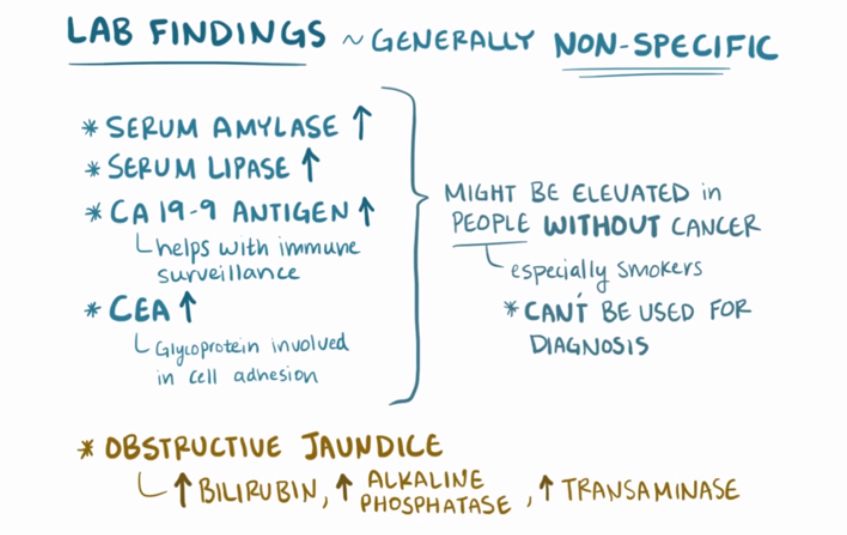 LAB FINDINGS ~ GENERALLY NON-SPECIFIC
* SERUM AMYLASE ↑
* SERUM LIPASE ↑
* CA 19-9 ANTIGEN ↑
helps with immune
surveillance
* CEA ↑
Glycoprotein involved
in cell adhesion
MIGHT BE ELEVATED in
PEOPLE WITHOUT CANCER
especially smokers
* CAN'T BE USED FOR
DIAGNOSIS
* OBSTRUCTIVE JAUNDICE
↑ BILIRUBIN, ↑ ALKALINE
PHOSPHATASE, ↑ TRANSAMINASE